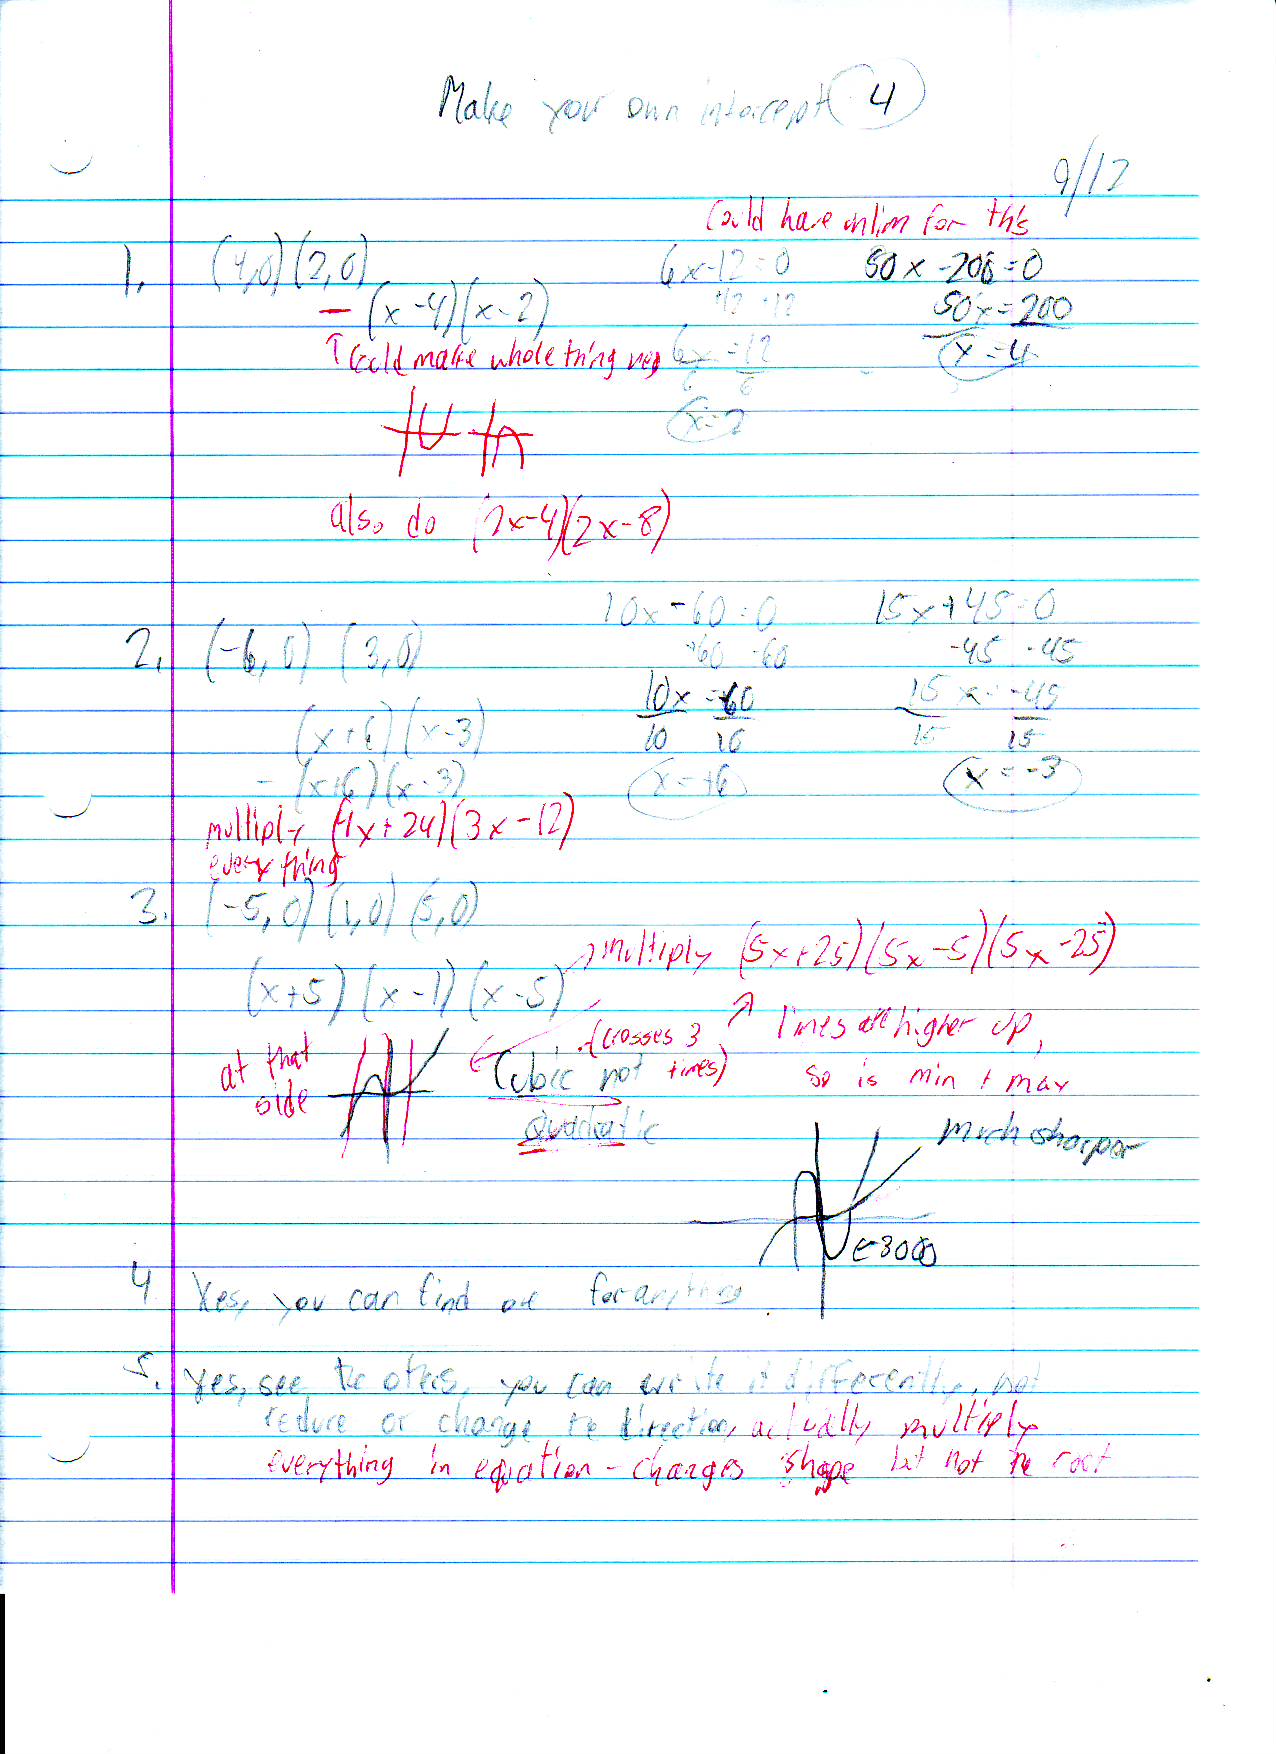 Make your own intercept 4
9/12
Could have unlim for this
1. (4,0) (2,0)
6x-12=0
+12 +12
6x = 12
6 6
x=2
50x -200=0
50x=200
x=4
- (x-4)(x-2)
↑ Could make whole thing neg
also do (2x-4)(2x-8)
2. (-6,0) (3,0)
10x-60=0
+60 -60
10x = 60
10 10
x=+6
15x+45=0
-45 -45
15x = -45
15 15
x=-3
(x+6)(x-3)
-(x+6)(x-3)
multiply (4x+24)(3x-12)
everything
3. (-5,0) (1,0) (5,0)
(x+5) (x-1) (x-5)
→ Multiply (5x+25)(5x-5)(5x-25)
↗ lines are higher up,
so is min + max
at that
side
(crosses 3
times)
Cubic not
Quadratic
Much sharper
←3000
4 Yes, you can find one for anything
5. Yes, see the others, you can write it differently, not
reduce or change the direction, actually multiply
everything in equation - changes shape but not the root